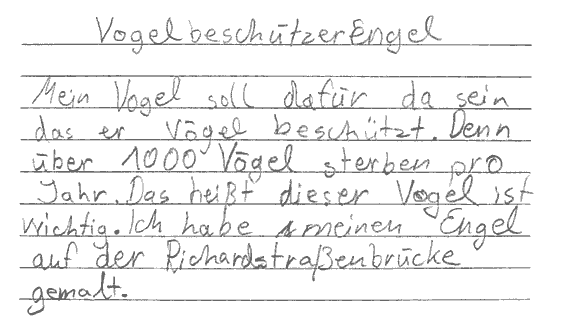 VogelbeschützerEngel
Mein Vogel soll dafür da sein
das er Vögel beschützt. Denn
über 1000 Vögel sterben pro
Jahr. Das heißt dieser Vogel ist
wichtig. Ich habe meinen Engel
auf der Richardstraßenbrücke
gemalt.